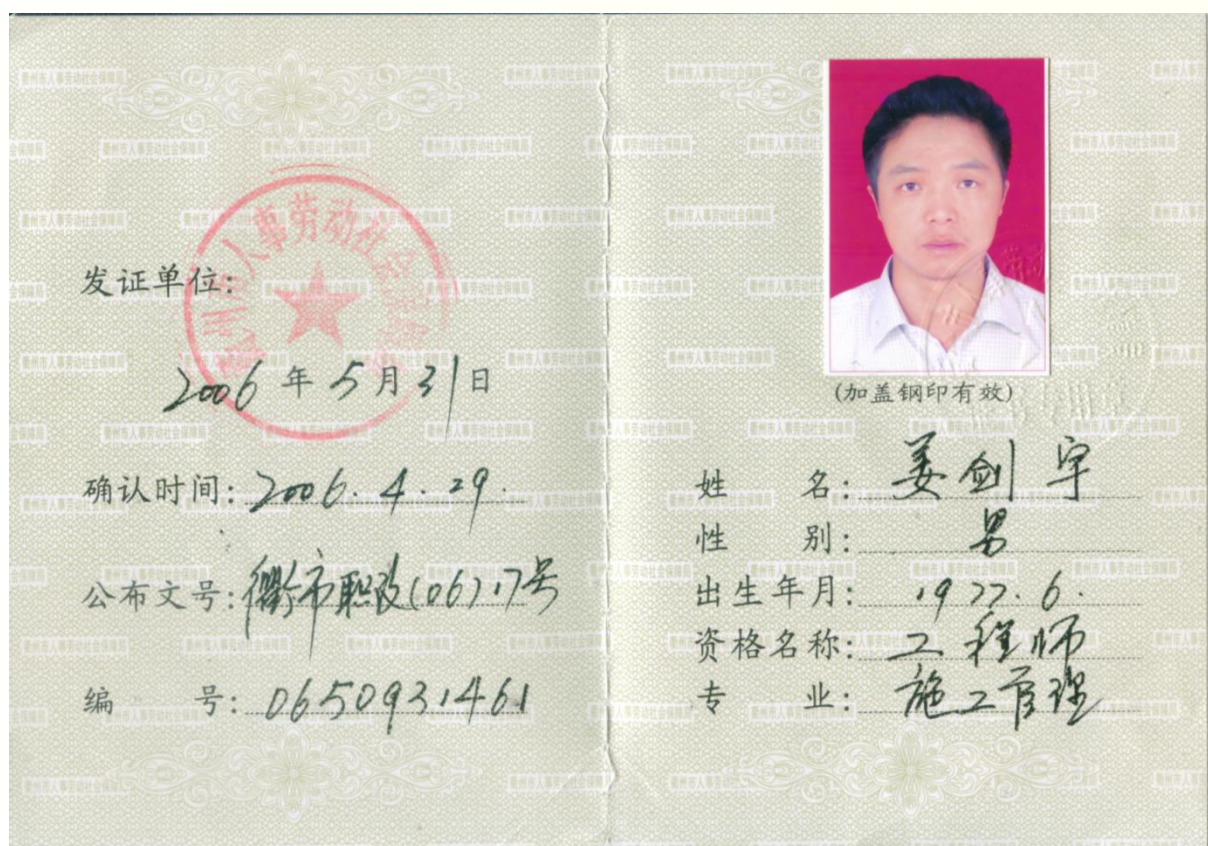 衢州市人事劳动社会保障局
发证单位:
2006年5月31日
确认时间: 2006.4.29.
公布文号: 衢市职改(06)17号
编 号: 0650931461
(加盖钢印有效)
姓 名: 姜剑宇
性 别: 男
出生年月: 1977.6.
资格名称: 工程师
专 业: 施工管理